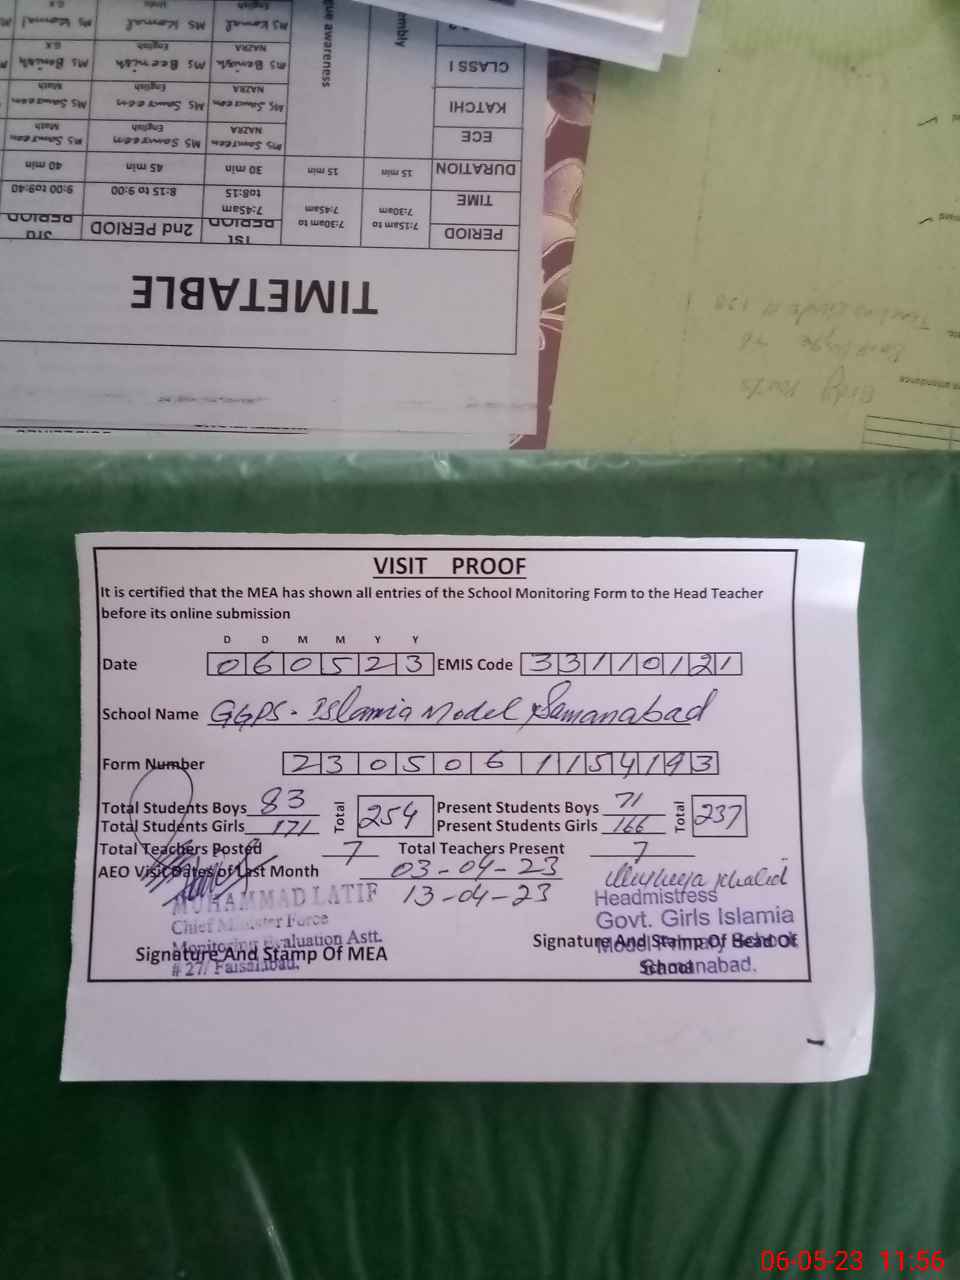 TIMETABLE
PERIOD 1ST PERIOD 2nd PERIOD 3rd PERIOD
TIME 7:15am to 7:30am 7:30am to 7:45am 7:45am to8:15 8:15 to 9:00 9:00 to9:40
DURATION 15 min 15 min 30 min 45 min 40 min
ECE Ms Samreen NAZRA Ms Samreen English Ms Samreen Math
KATCHI Ms Samreen NAZRA Ms Samreen English Ms Samreen Math
CLASS I Ms Benish NAZRA Ms Beenish English Ms Benish G.K
Ms Komal English Ms Komal Urdu Ms Komal G.K
awareness
VISIT PROOF
It is certified that the MEA has shown all entries of the School Monitoring Form to the Head Teacher
before its online submission
D D M M Y Y
Date 060523 EMIS Code 33110121
School Name GGPS. Islamia Model Samanabad
Form Number 2305061154193
Total Students Boys 83 Total 254 Present Students Boys 71 Total 237
Total Students Girls 171 Present Students Girls 166
Total Teachers Posted 7 Total Teachers Present 7
AEO Visit Dates of Last Month 03-04-23
13-04-23
MUHAMMAD LATIF
Chief Minister Force
Monitoring Evaluation Astt.
# 27/ Faisalabad.
Signature And Stamp Of MEA
Khalid
Headmistress
Govt. Girls Islamia
Model Primary School
Samanabad.
Signature And Stamp Of Head Of
School
06-05-23 11:56